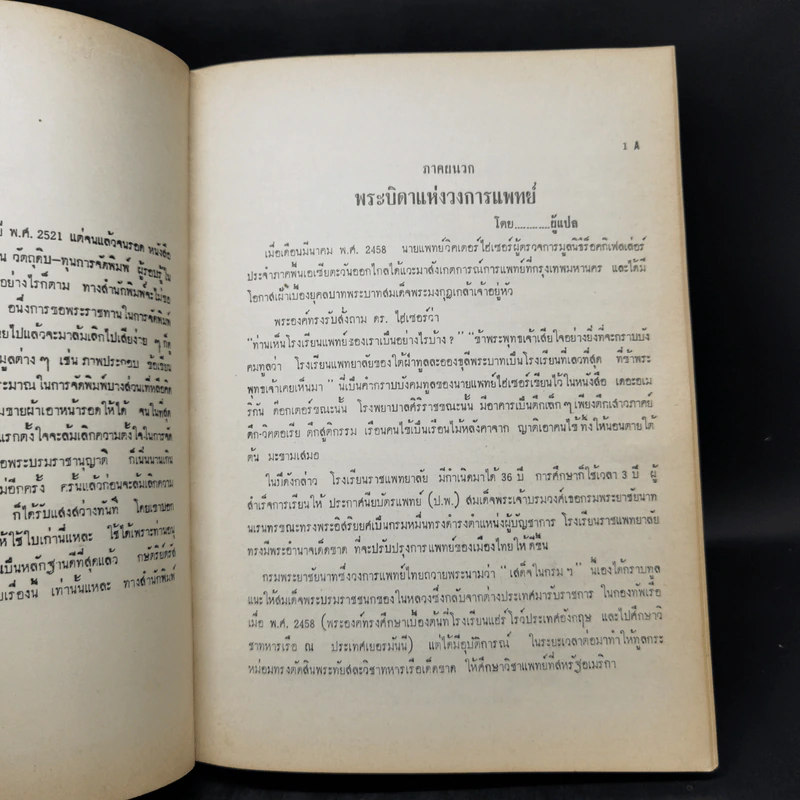 พ.ศ. 2521 แต่จนแล้วจนรอด หนังสือ
วัตถุดิบ-ทุนการจัดพิมพ์ ผู้รอบรู้ใน
อย่างไรก็ตาม ทางสำนักพิมพ์จะไม่ขอ
อนึ่งการขอพระราชทานในการจัดพิมพ์
ยไปแล้วจะมาล้มเลิกไปเสียง่าย ๆ ก็ดู
มูลต่าง ๆ เช่น ภาพประกอบ ชื่อเรียน
ระมาณในการจัดพิมพ์บางส่วนที่เหลือคิด
มขายผ้าเอาหน้ารอดให้ได้ จนในที่สุด
แรกตั้งใจจะล้มเลิกความตั้งใจในการจัด
อพระบรมราชานุญาติ ก็เนิ่นนานเกิน
มือีกครั้ง ครั้นแล้วก่อนจะล้มเลิกความ
ก็ได้รับแสงสว่างทันที โดยเขาบอก
ให้ใช้ใบเก่านี่แหละ ใช้ได้เพราะท่านอนุ
เป็นหลักฐานดีที่สุดแล้ว กษัตริย์ตรัส
ยเรื่องนี้ เท่านั้นแหละ ทางสำนักพิมพ์
1 A
ภาคผนวก
พระบิดาแห่งวงการแพทย์
โดย...........ผู้แปล
เมื่อเดือนมีนาคม พ.ศ. 2458 นายแพทย์วิคเตอร์ไฮเซอร์ผู้ตรวจการมูลนิธิร็อคกี้เฟลเล่อร์
ประจำภาคพื้นเอเซียตะวันออกไกลได้แวะมาสังเกตการณ์การแพทย์ที่กรุงเทพมหานคร และได้มี
โอกาสเฝ้าเบื้องยุคลบาทพระบาทสมเด็จพระมงกุฎเกล้าเจ้าอยู่หัว
พระองค์ทรงรับสั่งถาม ดร. ไฮเซอร์ว่า
"ท่านเห็นโรงเรียนแพทย์ของเราเป็นอย่างไรบ้าง ?" "ข้าพระพุทธเจ้าเสียใจอย่างยิ่งที่จะกราบบัง
คมทูลว่า โรงเรียนแพทยาลัยของใต้ฝ่าทูลละอองธุลีพระบาทเป็นโรงเรียนที่เลวที่สุด ที่ข้าพระ
พุทธเจ้าเคยเห็นมา" นี่เป็นคำกราบบังคมทูลของนายแพทย์ไฮเซอร์เขียนไว้ในหนังสือ เดอะอเม
ริกัน ด๊อกเตอร์ขณะนั้น โรงพยาบาลศิริราชขณะนั้น มีอาคารเป็นตึกเล็ก ๆ เพียงตึกเสาวภาคย์
ตึก-วิคตอเรีย ตึกสูติกรรม เรือนคนไข้เป็นเรือนไม้หลังคาจาก ญาติเอาคนไข้ทิ้งให้นอนตายใต้
ต้น มะขามเสมอ
ในปีดังกล่าว โรงเรียนราชแพทยาลัย มีกำเนิดมาได้ 36 ปี การศึกษาก็ใช้เวลา 3 ปี ผู้
สำเร็จการเรียนให้ ประกาศนียบัตรแพทย์ (ป.พ.) สมเด็จพระเจ้าบรมวงค์เธอกรมพระยาชัยนาท
นเรนทรขณะทรงพระอิสริยยศเป็นกรมหมื่นทรงดำรงตำแหน่งผู้บัญชาการ โรงเรียนราชแพทยาลัย
ทรงมีพระอำนาจเด็ดขาด ที่จะปรับปรุงการแพทย์ของเมืองไทยให้ดีขึ้น
กรมพระยาชัยนาทซึ่งวงการแพทย์ไทยถวายพระนามว่า "เสด็จในกรมฯ" นี่เองได้กราบทูล
แนะให้สมเด็จพระบรมราชชนกของในหลวงซึ่งกลับจากต่างประเทศมารับราชการ ในกองทัพเรือ
เมื่อ พ.ศ. 2458 (พระองค์ทรงศึกษาเบื้องต้นที่โรงเรียนแฮร์โรว์ประเทศอังกฤษ และไปศึกษาวิ
ชาทหารเรือ ณ ประเทศเยอรมันนี) แต่ได้มีอุบัติการณ์ ในระยะเวลาต่อมาทำให้ทูลกระ
หม่อมทรงตัดสินพระทัยสละวิชาทหารเรือเด็ดขาด ให้ศึกษาวิชาแพทย์ที่สหรัฐอเมริกา